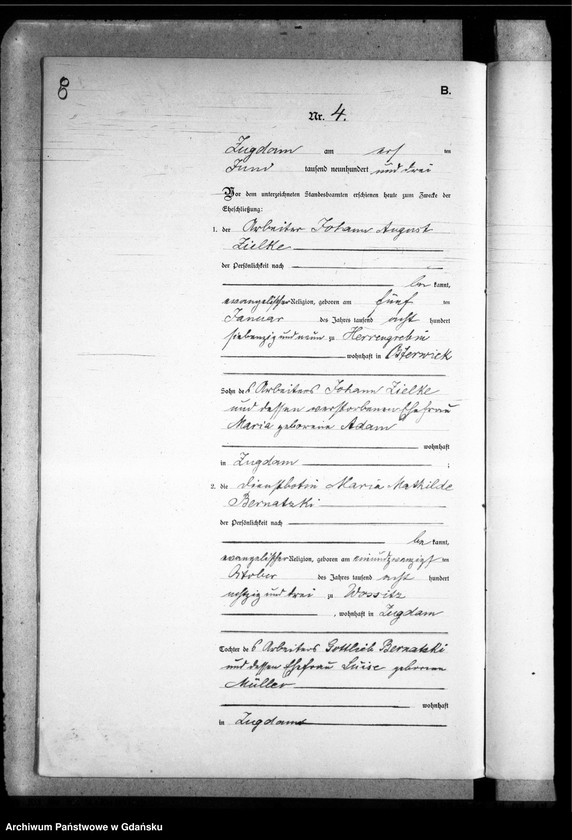 8
B.
Nr. 4.
Zugdam am ersten
Juni tausend neunhundert und drei
Vor dem unterzeichneten Standesbeamten erschienen heute zum Zwecke der
Eheschließung:
1. der Arbeiter Johann August
Zielke
der Persönlichkeit nach
be kannt,
evangelischer Religion, geboren am fünf ten
Januar des Jahres tausend acht hundert
siebenzig und neun zu Herrengrebin
wohnhaft in Osterwick
Sohn des Arbeiters Johann Zielke
und dessen verstorbenen Ehefrau
Maria geborene Adam
wohnhaft
in Zugdam ;
2. die Dienstbotin Maria Mathilde
Bernatzki
der Persönlichkeit nach
be kannt,
evangelischer Religion, geboren am einundzwanzigsten
Oktober des Jahres tausend acht hundert
achtzig und drei zu Wossitz
, wohnhaft in Zugdam
Tochter des Arbeiters Gottlieb Bernatzki
und dessen Ehefrau Luise geborene
Müller
wohnhaft
in Zugdam
Archiwum Państwowe w Gdańsku